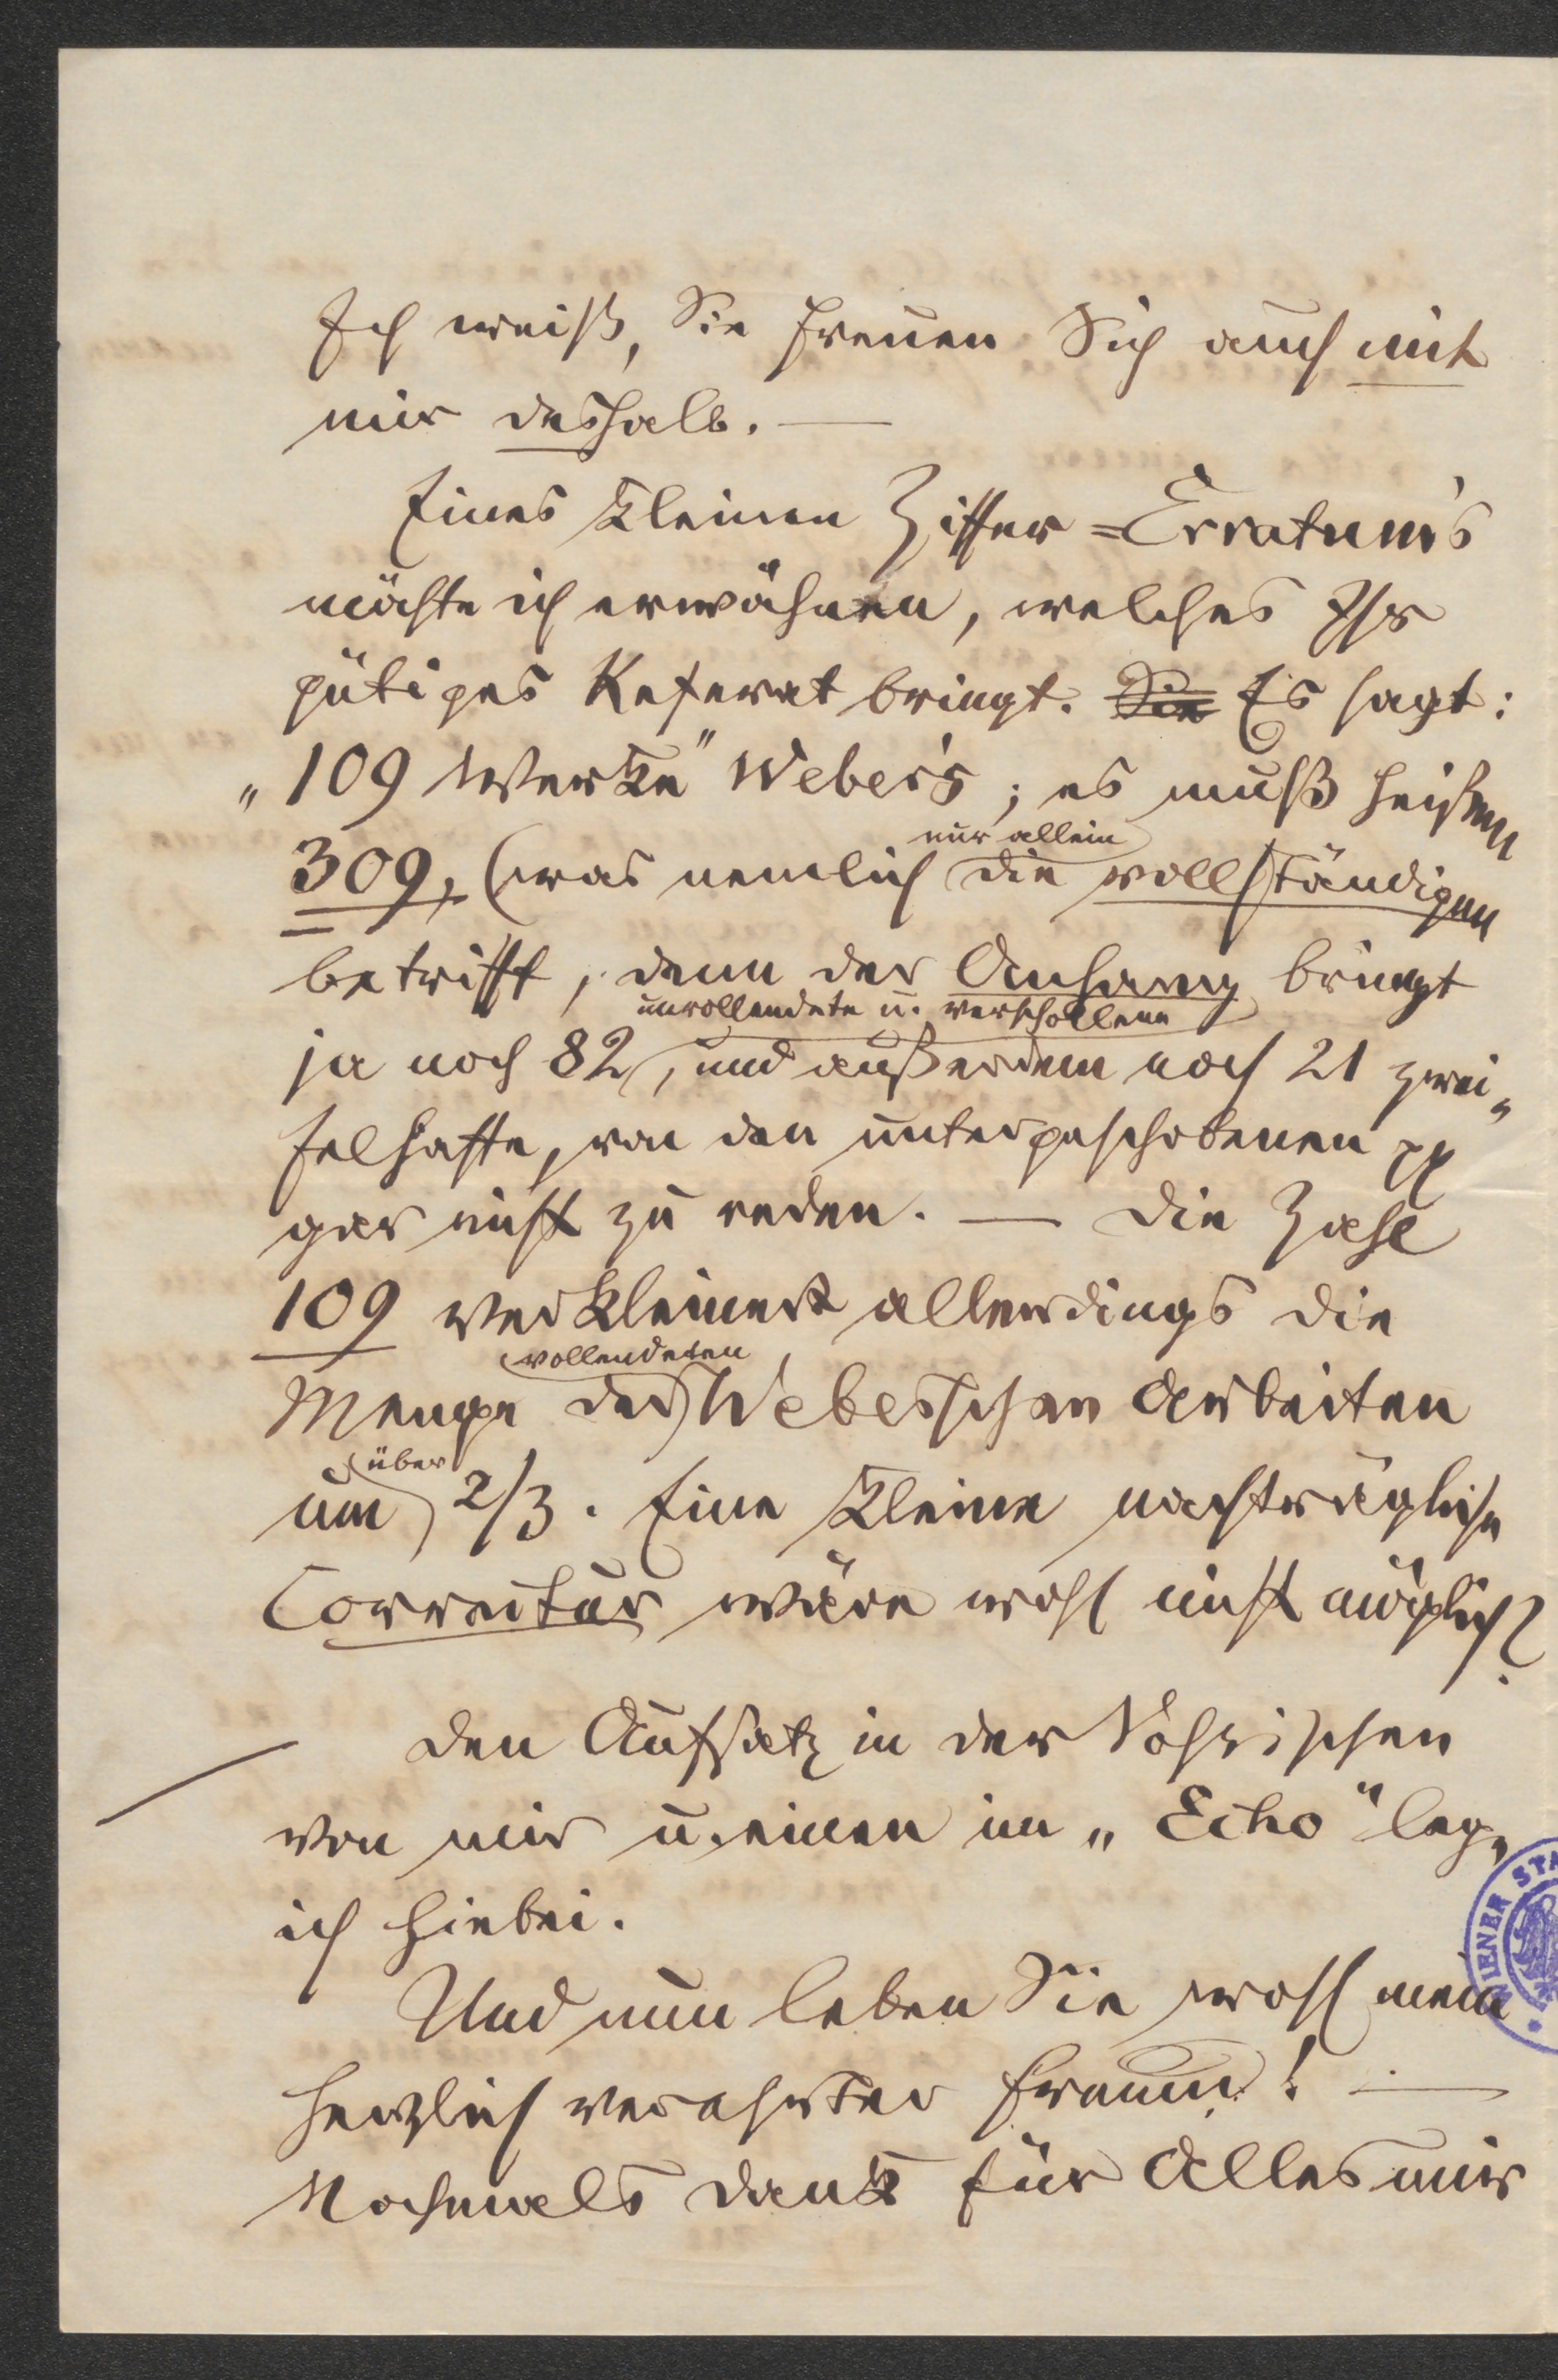 Ich weiß, Sie freuen Sich auch mit
mir deshalb. —
Eines kleinen Ziffer-Erratum's
möchte ich erwähnen, welches Ihr
gütiges Referat bringt. Sie Es sagt:
„109 Werke" Weber's; es muß heißen
309, (was nemlich nur allein die vollständigen
betrifft, denn der Anhang bringt
ja noch 82 unvollendete u. verschollene, und außerdem noch 21 zwei„
felhafte, von den untergeschobenen pp
gar nicht zu reden. — Die Zahl
109 verkleinert allerdings die
Menge der vollendeten Weberschen Arbeiten
um über 2/3. Eine kleine nachträgliche
Correctur wäre wohl nicht möglich?
Den Aufsatz in der Voßischen
von mir u. einen im „Echo" leg„
ich hiebei.
Und nun leben Sie wohl mein
herzlich verehrter Freund! —
Nochmals Dank für Alles mir
WIENER STA